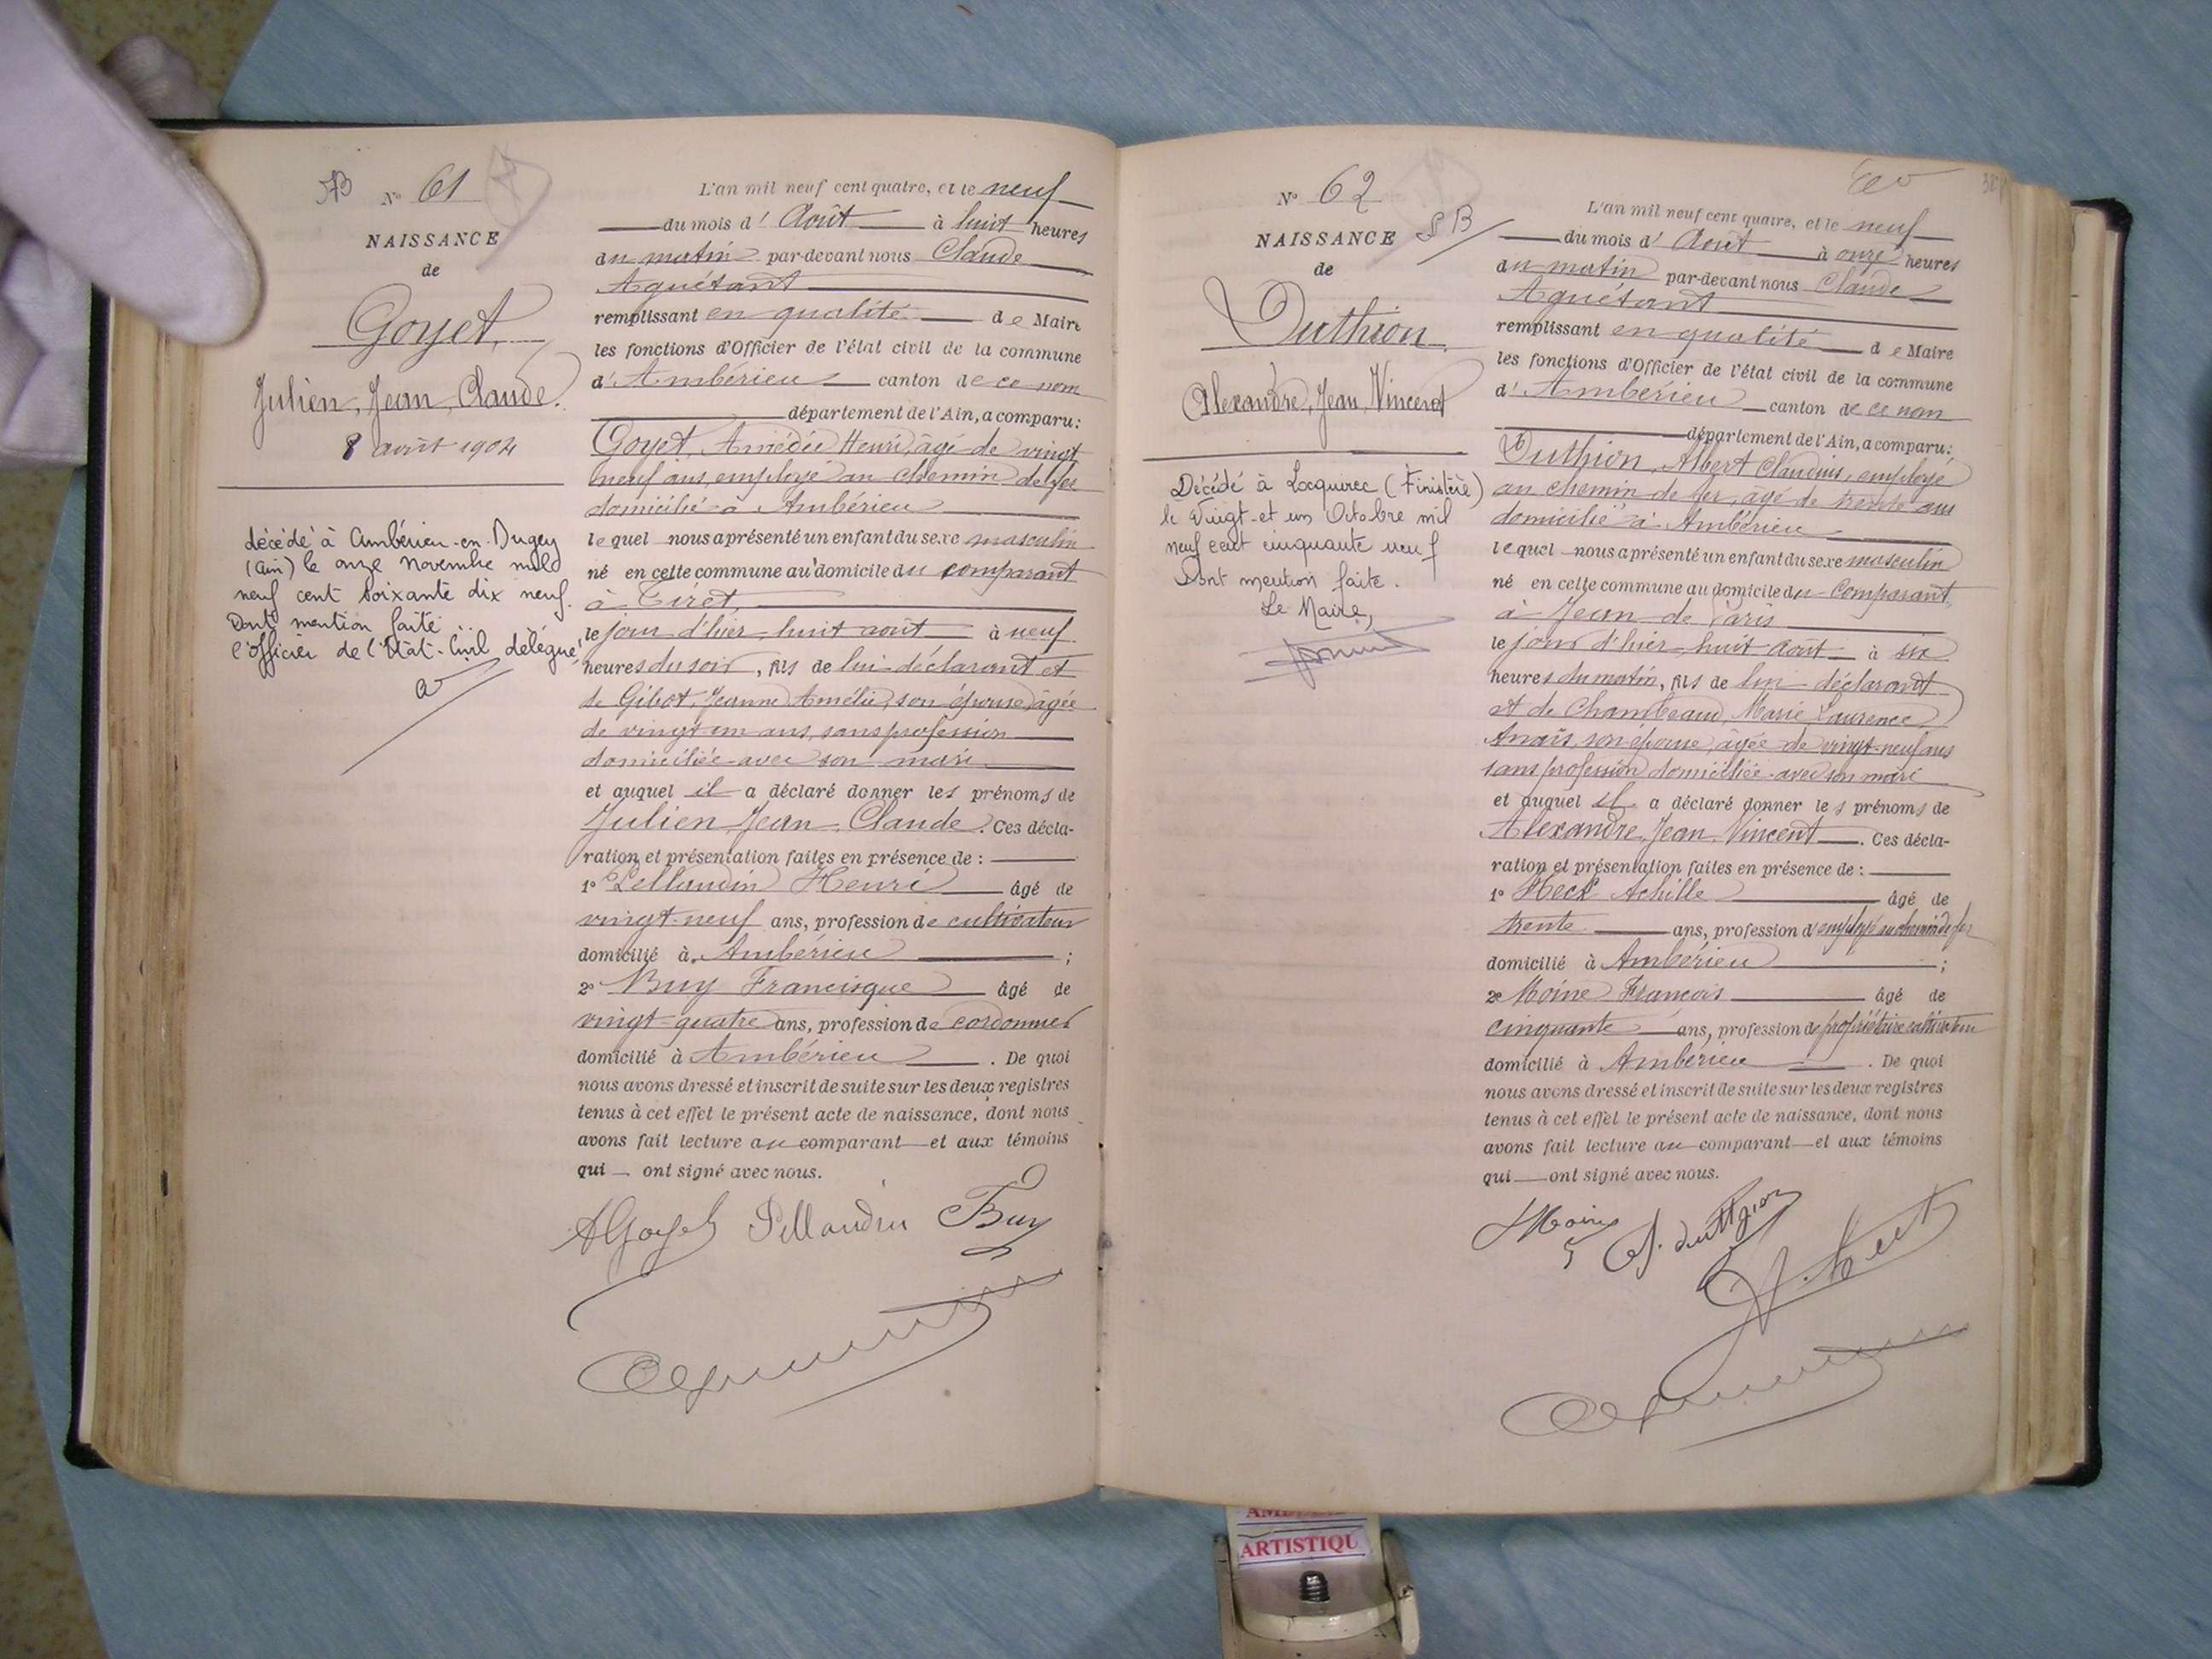 N° 61
NAISSANCE
de
Goyet
Julien, Jean, Claude.
8 août 1904
décédé à Ambérieu-en-Bugey
(Ain) le onze Novembre mil
neuf cent soixante dix neuf.
Dont mention faite.
l'officier de l'Etat-Civil délégué
L'an mil neuf cent quatre, et le neuf
du mois d'Août à huit heures
du matin par-devant nous Claude
Aguétant
remplissant en qualité de Maire
les fonctions d'Officier de l'état civil de la commune
d'Ambérieu canton de ce nom
département de l'Ain, a comparu:
Goyet, Amédée Henri, âgé de vingt
neuf ans, employé au chemin de fer
domicilié à Ambérieu
lequel nous a présenté un enfant du sexe masculin
né en cette commune au domicile du comparant
à Tiret,
le jour d'hier huit août à neuf
heures du soir, fils de lui déclarant et
de Gibot, Jeanne Amélie, son épouse, âgée
de vingt un ans, sans profession
domiciliée avec son mari
et auquel il a déclaré donner les prénoms de
Julien Jean Claude. Ces décla-
ration et présentation faites en présence de :
1° Pellaudin Henri âgé de
vingt-neuf ans, profession de cultivateur
domicilié à Ambérieu ;
2° Buy Francisque âgé de
vingt-quatre ans, profession de cordonnier
domicilié à Ambérieu. De quoi
nous avons dressé et inscrit de suite sur les deux registres
tenus à cet effet le présent acte de naissance, dont nous
avons fait lecture au comparant et aux témoins
qui ont signé avec nous.
AGoyet Pellaudin Buy
N° 62
NAISSANCE
de
Duthion
Alexandre, Jean, Vincent
Décédé à Locquirec (Finistère)
le Vingt-et un Octobre mil
neuf cent cinquante neuf
Dont mention faite.
Le Maire,
L'an mil neuf cent quatre, et le neuf
du mois d'Août à onze heures
du matin par-devant nous Claude
Aguétant
remplissant en qualité de Maire
les fonctions d'Officier de l'état civil de la commune
d'Ambérieu canton de ce nom
département de l'Ain, a comparu:
Duthion, Albert Claudius, employé
au chemin de fer, âgé de trente ans
domicilié à Ambérieu
lequel nous a présenté un enfant du sexe masculin
né en cette commune au domicile du Comparant,
à Jean de Paris
le jour d'hier huit août à six
heures du matin, fils de lui déclarant
et de Chambeaud, Marie Laurence
Anaïs, son épouse, âgée de vingt-neuf ans
sans profession domiciliée avec son mari
et auquel il a déclaré donner les prénoms de
Alexandre, Jean, Vincent. Ces décla-
ration et présentation faites en présence de :
1° Heck Achille âgé de
trente ans, profession d'employé au chemin de fer
domicilié à Ambérieu ;
2e Moine François âgé de
cinquante ans, profession de propriétaire cultivateur
domicilié à Ambérieu. De quoi
nous avons dressé et inscrit de suite sur les deux registres
tenus à cet effet le présent acte de naissance, dont nous
avons fait lecture au comparant et aux témoins
qui ont signé avec nous.
Moine A. duthion
ARTISTIQU